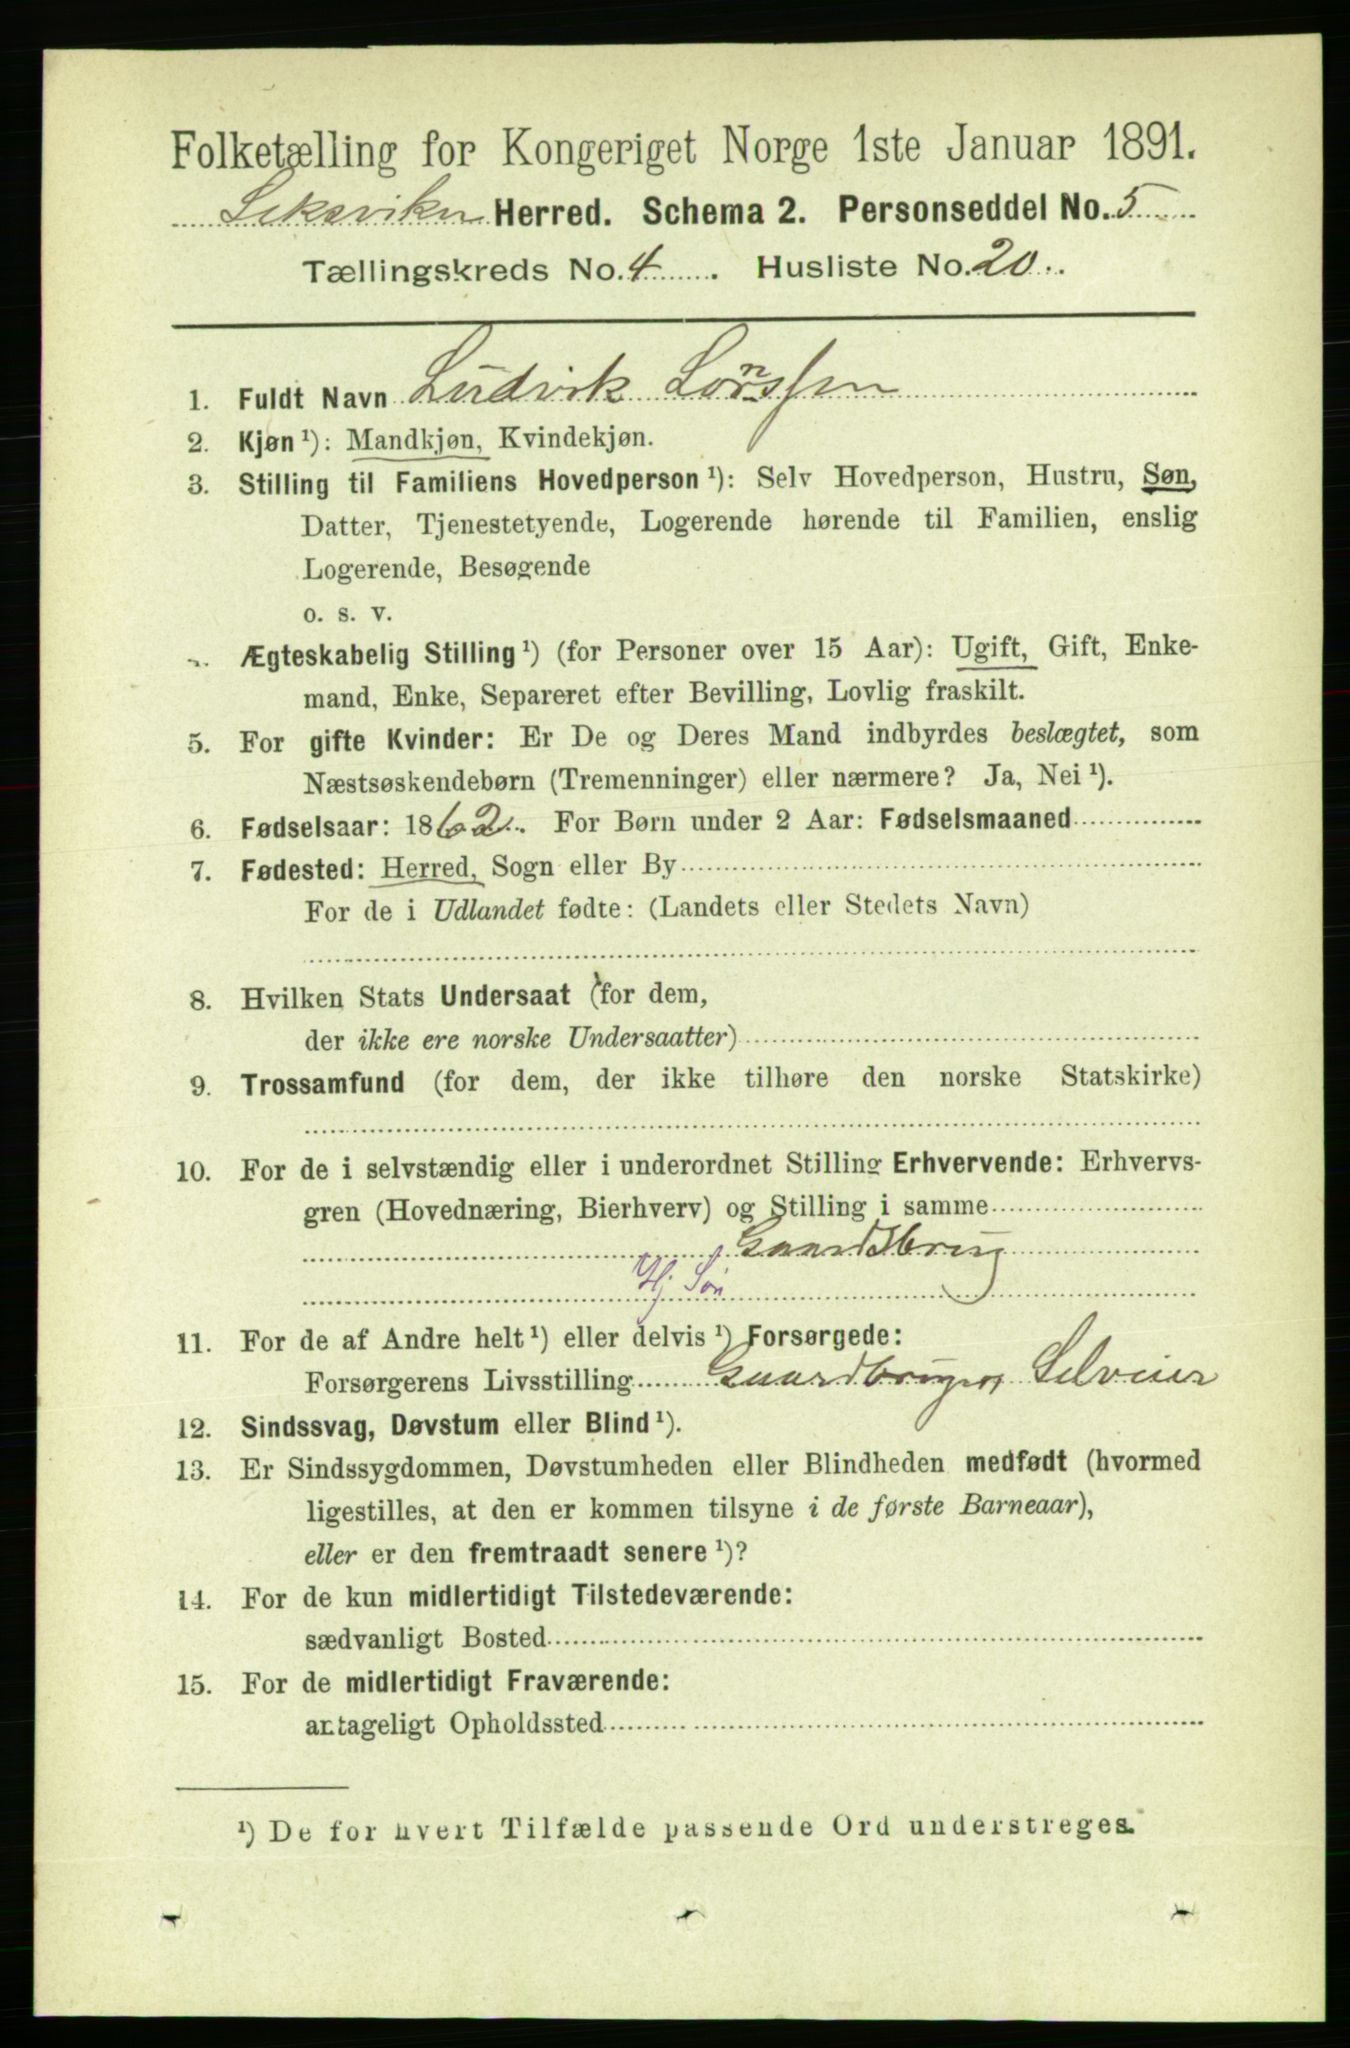 Folketælling for Kongeriget Norge 1ste Januar 1891.
Leksviken Herred. Schema 2. Personseddel No. 5
Tællingskreds No. 4. Husliste No. 20.
1. Fuldt Navn Ludvik
2. Kjøn ¹): Mandkjøn, Kvindekjøn.
3. Stilling til Familiens Hovedperson ¹): Selv Hovedperson, Hustru, Søn,
Datter, Tjenestetyende, Logerende hørende til Familien, enslig
Logerende, Besøgende
o. s. v.
Ægteskabelig Stilling ¹) (for Personer over 15 Aar): Ugift, Gift, Enke-
mand, Enke, Separeret efter Bevilling, Lovlig fraskilt.
5. For gifte Kvinder: Er De og Deres Mand indbyrdes beslægtet, som
Næstsøskendebørn (Tremenninger) eller nærmere? Ja, Nei ¹).
6. Fødselsaar: 1862. For Børn under 2 Aar: Fødselsmaaned
7. Fødested: Herred, Sogn eller By
For de i Udlandet fødte: (Landets eller Stedets Navn)
8. Hvilken Stats Undersaat (for dem,
der ikke ere norske Undersaatter)
9. Trossamfund (for dem, der ikke tilhøre den norske Statskirke)
10. For de i selvstændig eller i underordnet Stilling Erhvervende: Erhvervs-
gren (Hovednæring, Bierhverv) og Stilling i samme
Gaardsbrug
Hj. Søn
11. For de af Andre helt ¹) eller delvis ¹) Forsørgede:
Forsørgerens Livsstilling Gaardbruger, Selveier
12. Sindssvag, Døvstum eller Blind ¹).
13. Er Sindssygdommen, Døvstumheden eller Blindheden medfødt (hvormed
ligestilles, at den er kommen tilsyne i de første Barneaar),
eller er den fremtraadt senere ¹)?
14. For de kun midlertidigt Tilstedeværende:
sædvanligt Bosted
15. For de midlertidigt Fraværende:
antageligt Opholdssted
¹) De for hvert Tilfælde passende Ord understreges.